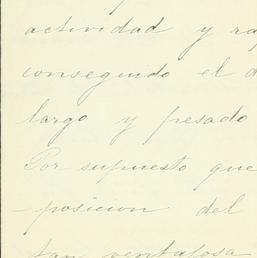 actividad y ra
conseguido el d
largo y pesado
Por supuesto que
-posicion del
tan ventajosa